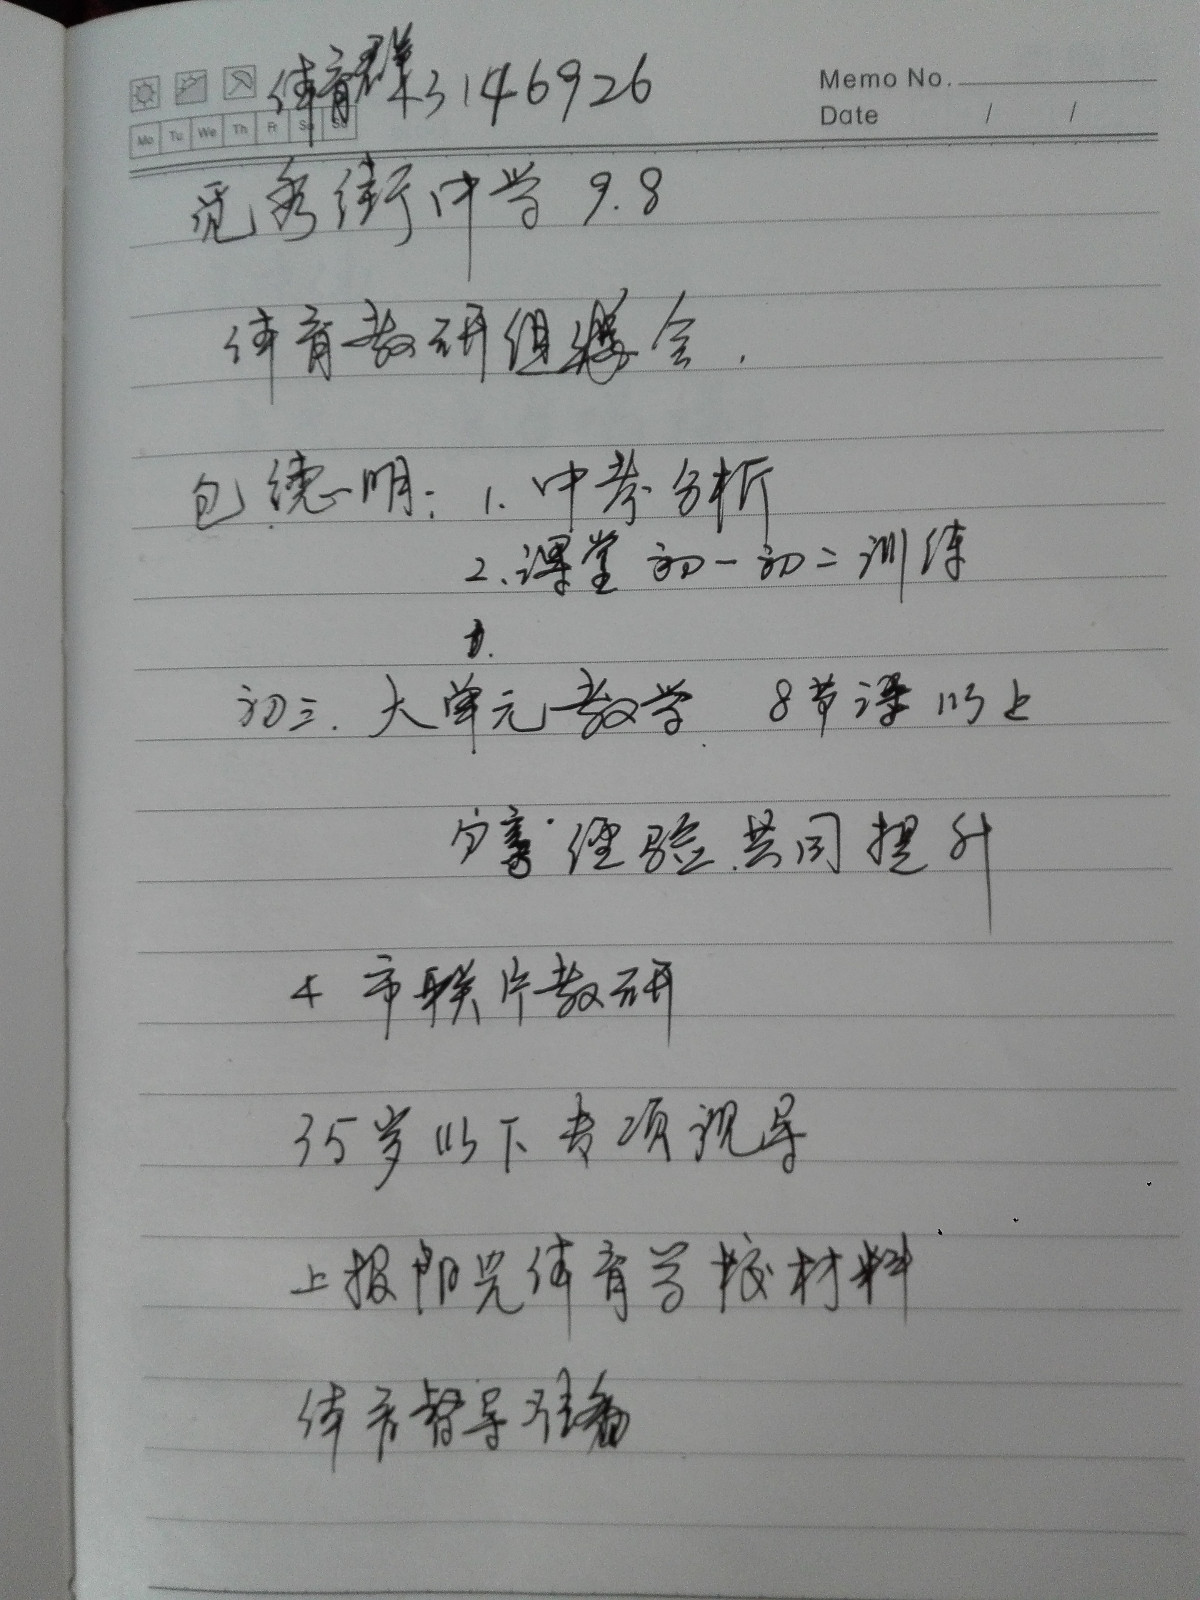 体育群 3146926
Memo No.
Date / /
Mo Tu We Th Fr Sa Su
秀街中学 9.8
体育教研组长会.
包德明: 1. 中考分析
2. 课堂 初一初二训练
初三. 大单元教学 8节课以上
分享 经验 共同提升
4 市联片教研
35岁以下专项视导
上报阳光体育学校材料
体育督导准备